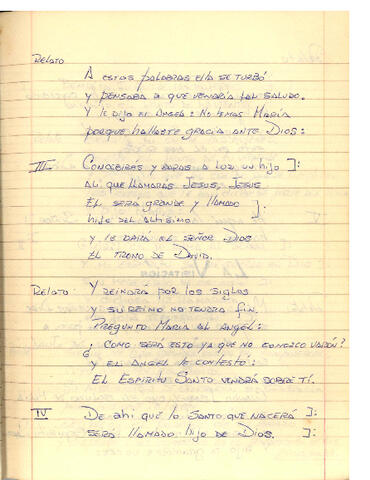 Relato
A estas palabras ella se turbó
y pensaba a que vendría tal saludo.
y le dijo el Angel: No temas María
porque hallaste gracia ante Dios:
III Concebiras y daras a luz un hijo ]:
Al que llamaras Jesus, Jesus
El será grande y llamado ]:
hijo del altisimo
y le dará el Señor Dios
El trono de David.
Relato: Y reinará por los siglos
y su reino no tendra fin.
Pregunto Maria al angel:
¿Como será esto ya que no conozco varón?
y el Angel le contestó:
El Espiritu Santo vendrá sobre tí.
IV De ahi que lo Santo que nacerá ]:
será llamado hijo de Dios. ]: